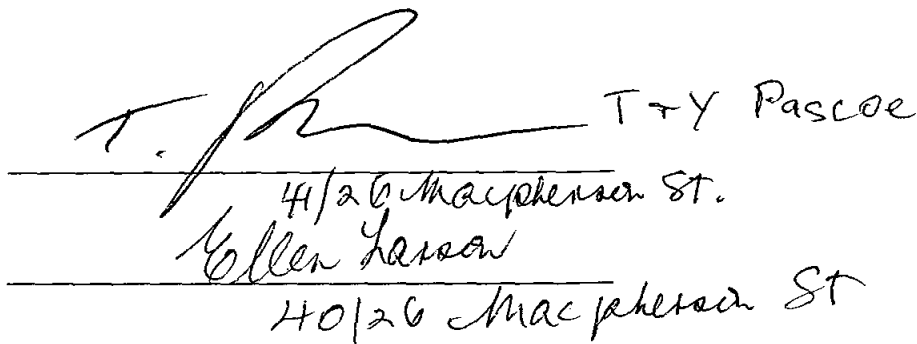 T. P T + Y Pascoe
41/26 Macpherson St.
Ellen Larson
40/26 Macpherson St